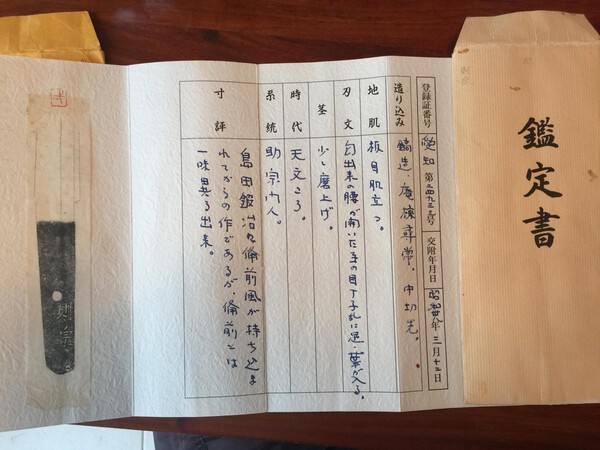 鑑定書
登録証番号 愛知 第二四九三三号 交附年月日 昭和 年三月十三日
造り込み 鎬造、庵棟尋常。中切先。
地肌 板目肌立つ。
刃文 匂出来の腰が開いた互の目丁子乱に足・葉が入る。
茎 少し磨上げ。
時代 天文ころ。
系統 助宗の人。
寸評 島田鍛冶に備前風が持ち込ま
れてからの作であるが、備前とは
一味異る出来。
則宗